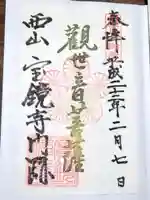 奉拝 平成二十三年二月七日
観世音菩薩
西山 宝鏡寺門跡